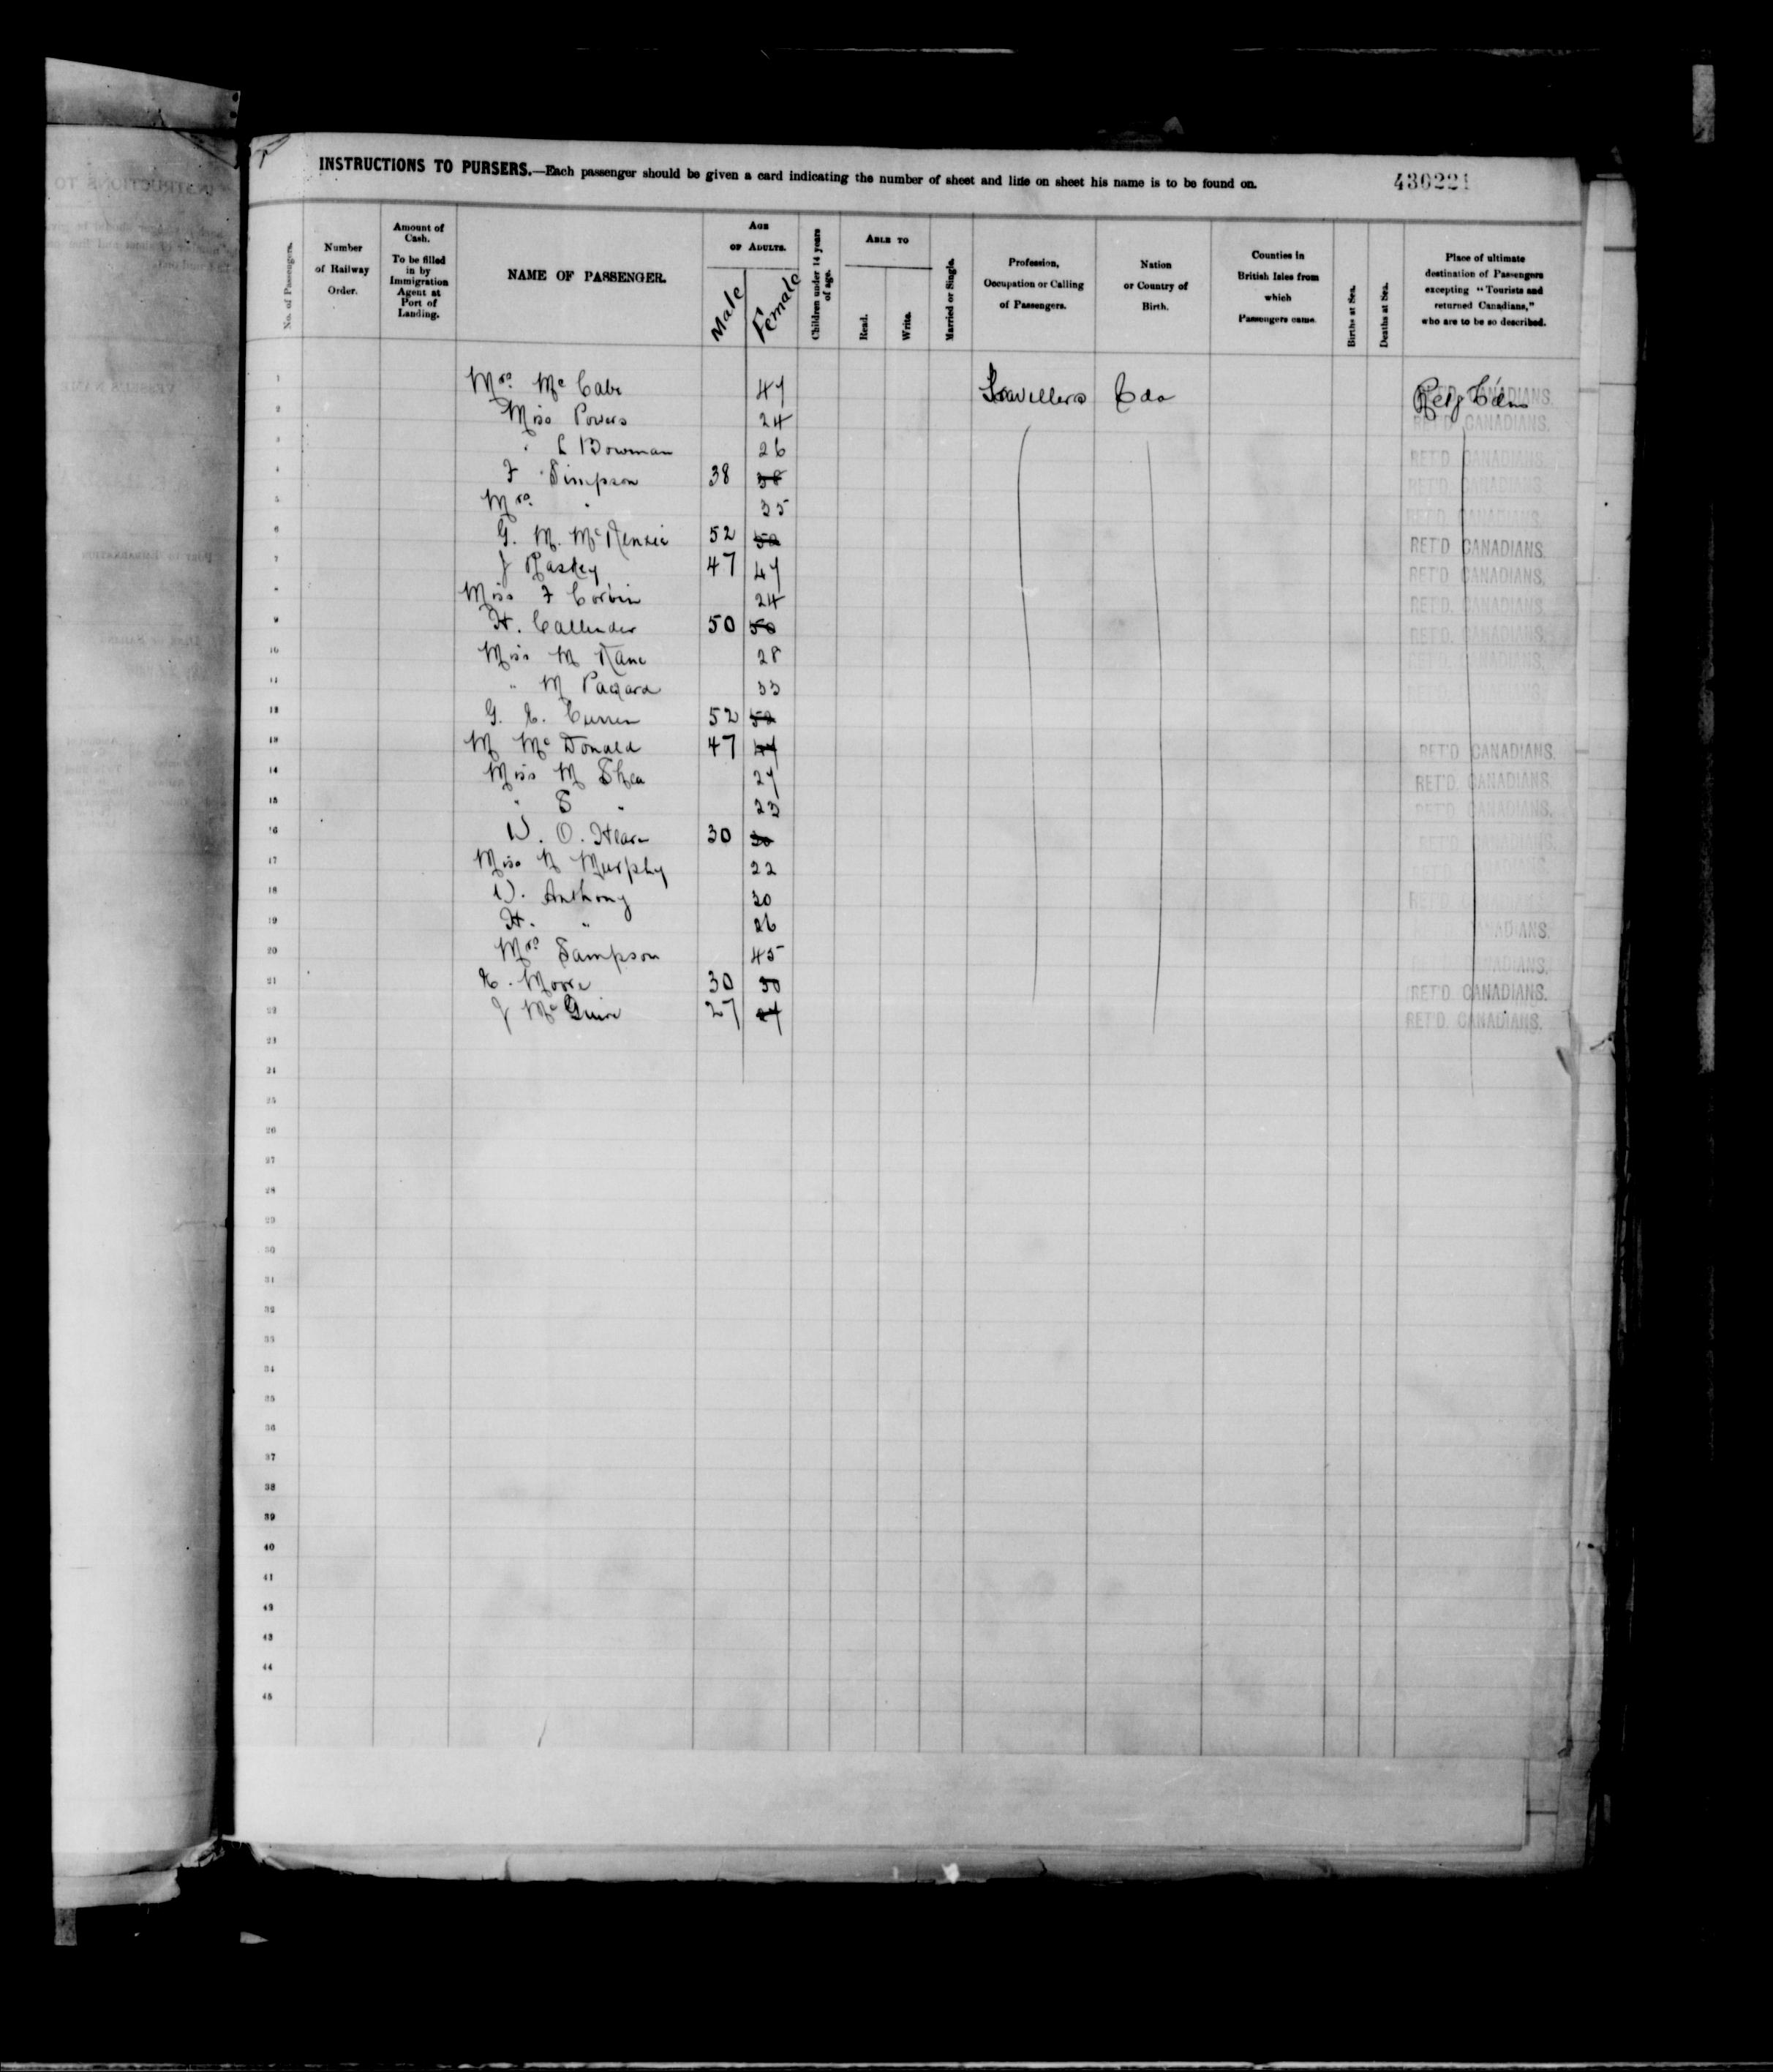 INSTRUCTIONS TO PURSERS.—Each passenger should be given a card indicating the number of sheet and line on sheet his name is to be found on.
430221
No. of Passengers.
Number of Railway Order.
Amount of Cash. To be filled in by Immigration Agent at Port of Landing.
NAME OF PASSENGER.
AGE OF ADULTS.
Male
Female
Children under 14 years of age.
ABLE TO
Read.
Write.
Married or Single.
Profession, Occupation or Calling of Passengers.
Nation or Country of Birth.
Counties in British Isles from which Passengers came.
Births at Sea.
Deaths at Sea.
Place of ultimate destination of Passengers excepting "Tourists and returned Canadians," who are to be so described.
1 Mrs. Mc Cabe 47 Travellers Cda RET'D CANADIANS.
2 Miss Powers 24 RET'D CANADIANS.
3 " L Bowman 26 RET'D CANADIANS.
4 F Simpson 38 38 RET'D CANADIANS.
5 Mrs. " 35 RET'D CANADIANS.
6 G. M. McKenzie 52 52 RET'D CANADIANS.
7 J Kasley 47 47 RET'D CANADIANS.
8 Miss F Corbin 24 RET'D. CANADIANS.
9 H. Callender 50 50 RET'D. CANADIANS.
10 Miss M Kane 28 RET'D. CANADIANS.
11 " M 33
12 G. C. Curren 52 52
13 M McDonald 47 47 RET'D CANADIANS.
14 Miss M Shea 27 RET'D. CANADIANS.
15 " S " 23 RET'D CANADIANS.
16 W. O. Hearn 30 30 RET'D CANADIANS.
17 Miss N Murphy 22 CANADIANS.
18 W. Anthony 30 RET'D CANADIANS.
19 H. " 26 CANADIANS.
20 Mrs Sampson 45 CANADIANS.
21 E. Moore 30 30 RET'D CANADIANS.
22 J McGuire 27 27 RET'D. CANADIANS.
23
24
25
26
27
28
29
30
31
32
33
34
35
36
37
38
39
40
41
42
43
44
45